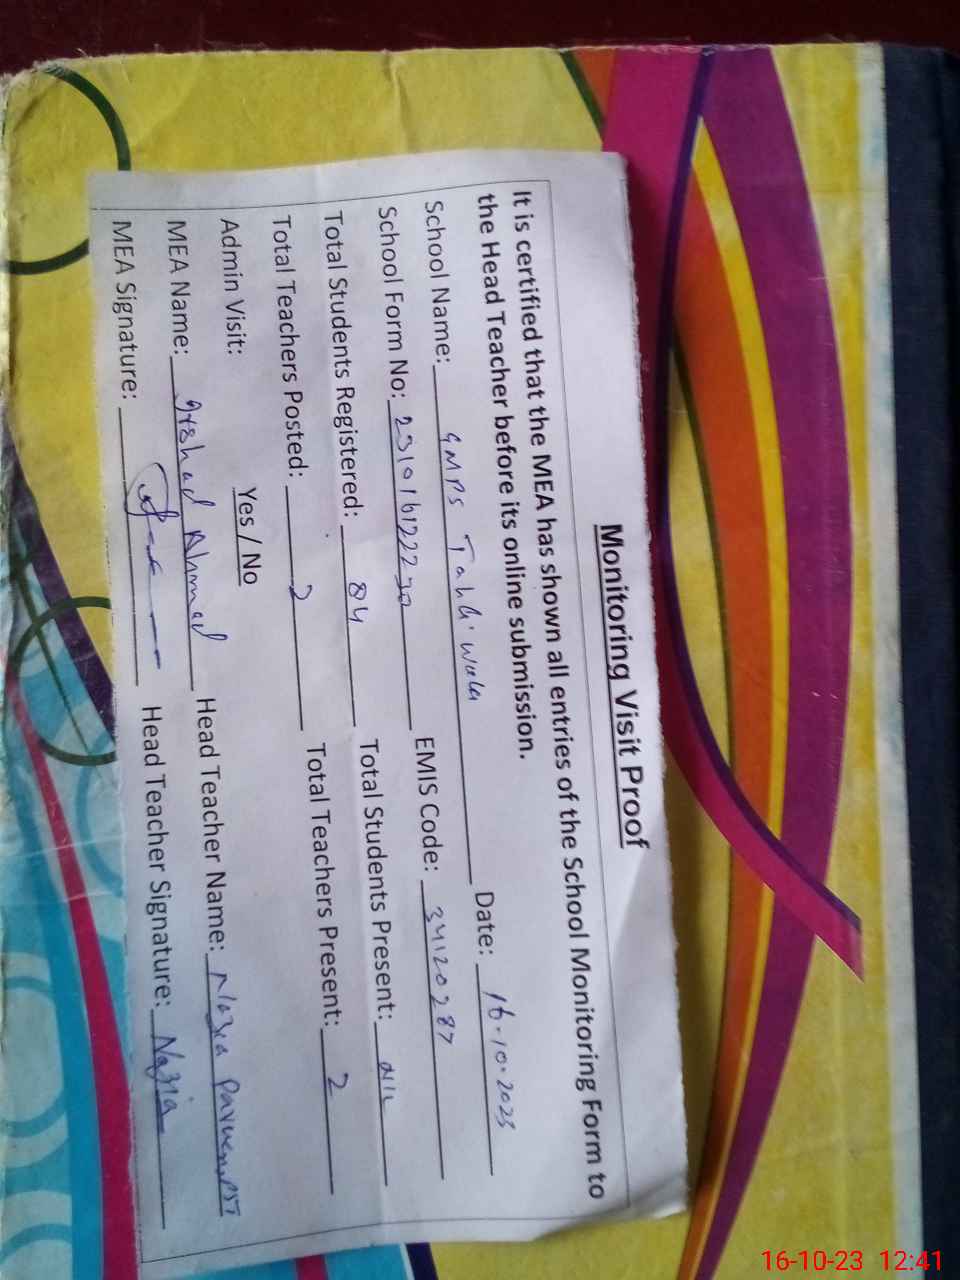 Monitoring Visit Proof
It is certified that the MEA has shown all entries of the School Monitoring Form to
the Head Teacher before its online submission.
School Name: GMPS Tahli wala Date: 16-10-2023
School Form No: EMIS Code: 34120287
Total Students Registered: 84 Total Students Present: Nil
Total Teachers Posted: 2 Total Teachers Present: 2
Admin Visit: Yes / No
MEA Name: Irshad Ahmed Head Teacher Name: Nazia Parveen PST
MEA Signature: Head Teacher Signature: Nazia
16-10-23 12:41